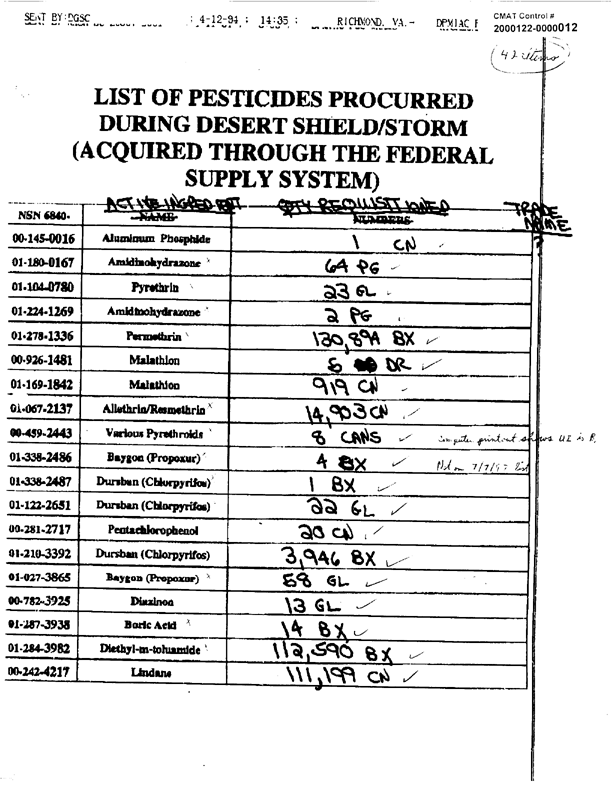 SENT BY: DGSC : 4-12-94 ; 14:35 ; RICHMOND, VA.- DPMIAC
CMAT Control #
2000122-0000012
42 items
LIST OF PESTICIDES PROCURRED
DURING DESERT SHIELD/STORM
(ACQUIRED THROUGH THE FEDERAL
SUPPLY SYSTEM)
NSN 6840- ACTIVE INGREDIENT NAME QTY REQUISITIONED NUMBERS TRADE NAME
00-145-0016 Aluminum Phosphide 1 CN ?
01-180-0167 Amidinohydrazone 64 PG
01-104-0780 Pyrethrin 23 GL
01-224-1269 Amidinohydrazone 2 PG
01-278-1336 Permethrin 130,894 BX
00-926-1481 Malathion 5 DR
01-169-1842 Malathion 919 CN
01-067-2137 Allethrin/Resmethrin 14,903 CN
00-459-2443 Various Pyrethroids 8 CANS Computer printout shows UI is
01-338-2486 Baygon (Propoxur) 4 BX Not on 7/7/93 list
01-338-2487 Dursban (Chlorpyrifos) 1 BX
01-122-2651 Dursban (Chlorpyrifos) 22 GL
00-281-2717 Pentachlorophenol 20 CN
01-210-3392 Dursban (Chlorpyrifos) 3,946 BX
01-027-3865 Baygon (Propoxur) 58 GL
00-782-3925 Diazinon 13 GL
01-287-3938 Boric Acid 14 BX
01-284-3982 Diethyl-m-toluamide 112,590 BX
00-242-4217 Lindane 111,199 CN